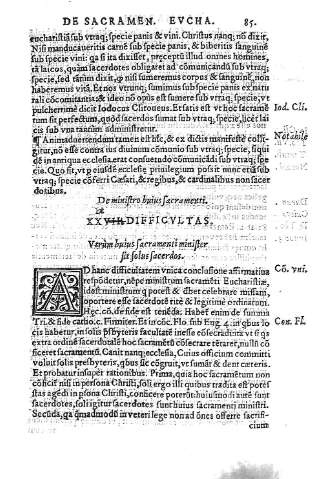 DE SACRAMEN. EVCHA. 85.
eucharistiã sub vtraq; specie panis & vini. Christus nanq; nõ dixit,
Nisi manducaueritis carnẽ sub specie panis, & biberitis sanguinẽ
sub specie vini: qa si ita dixisset, preceptũ illud omnes homines,
tã laicos, quàm sacerdotes obligaret ad cõmunicãdũ sub vtraq;
specie, sed tãtùm dixit, q nisi sumeremus corpus & sanguinẽ, non
haberemus vitã. Et nos vtrunq; sumimus sub specie panis ex natu
rali cõcomitantia: & ideo nõ opus est sumere sub vtraq; specie, vt
pulcherrimè dicit Iodocus Clitoueus. Et satis est vt hoc sacramẽ
tum sit perfectum, quòd sacerdos sumat sub vtraq; specie, licet lai
cis sub vna tantùm administretur.
Iod. Cli.
¶ Animaduertendum tamen est hîc, & ex dictis manifestè colli-
gitur, nõ esse contra ius diuinum cõmunio sub vtraq; specie, siqui
dẽ in antiqua ecclesia erat consuetudo cõmunicãdi sub vtraq; spe
cie. Quo fit, vt eiusdẽ ecclesiæ priuilegium possit nunc etiã sub
vtraq; specie cõferri Cæsari, & regibus, & cardinalibus non sacer
dotibus.
Notabile
De ministro huius sacramenti.
DIFFICVLTAS.
Vtrùm huius sacramenti minister
sit solus sacerdos.
AD hanc difficultatem vnica conclusione affirmatiua
respõdetur, nẽpe ministrum sacramẽti Eucharistiæ,
idest ministrum q potest & debet celebrare missam,
oportere esse sacerdotẽ ritè & legitimè ordinatum.
Hęc cõ. de fide est tenẽda. Habet enim de summa
Tri. & fide cathoc. Firmiter. Et in cõc. Flo. sub Eug. 4. in qbus lo
cis habetur, in solis psbyteris facultatẽ inesse cõsecrãdi: vt si qs
extra ordinẽ sacerdotalẽ hoc sacramẽtũ cõsecrare tẽtaret, nullũ cõ
ficeret sacramentũ. Canit nanq; ecclesia, Cuius officium committi
voluit solis presbyteris, qbus sic cõgruit, vt sumãt & dent cæteris.
Et probatur insuper rationibus. Prima, quia hoc sacramẽtum non
conficit nisi in persona Christi, soli ergo illi quibus tradita est potẽ
stas agẽdi in psona Christi, conficere poterũt: huiusmodi autẽ sunt
sacerdotes, soli igitur sacerdotes sunt huius sacramenti ministri.
Secũda, qa quẽadmodũ in veteri lege non ad õnes offerre sacrifi-
cium
Cõ. vni.
Con. Fl.